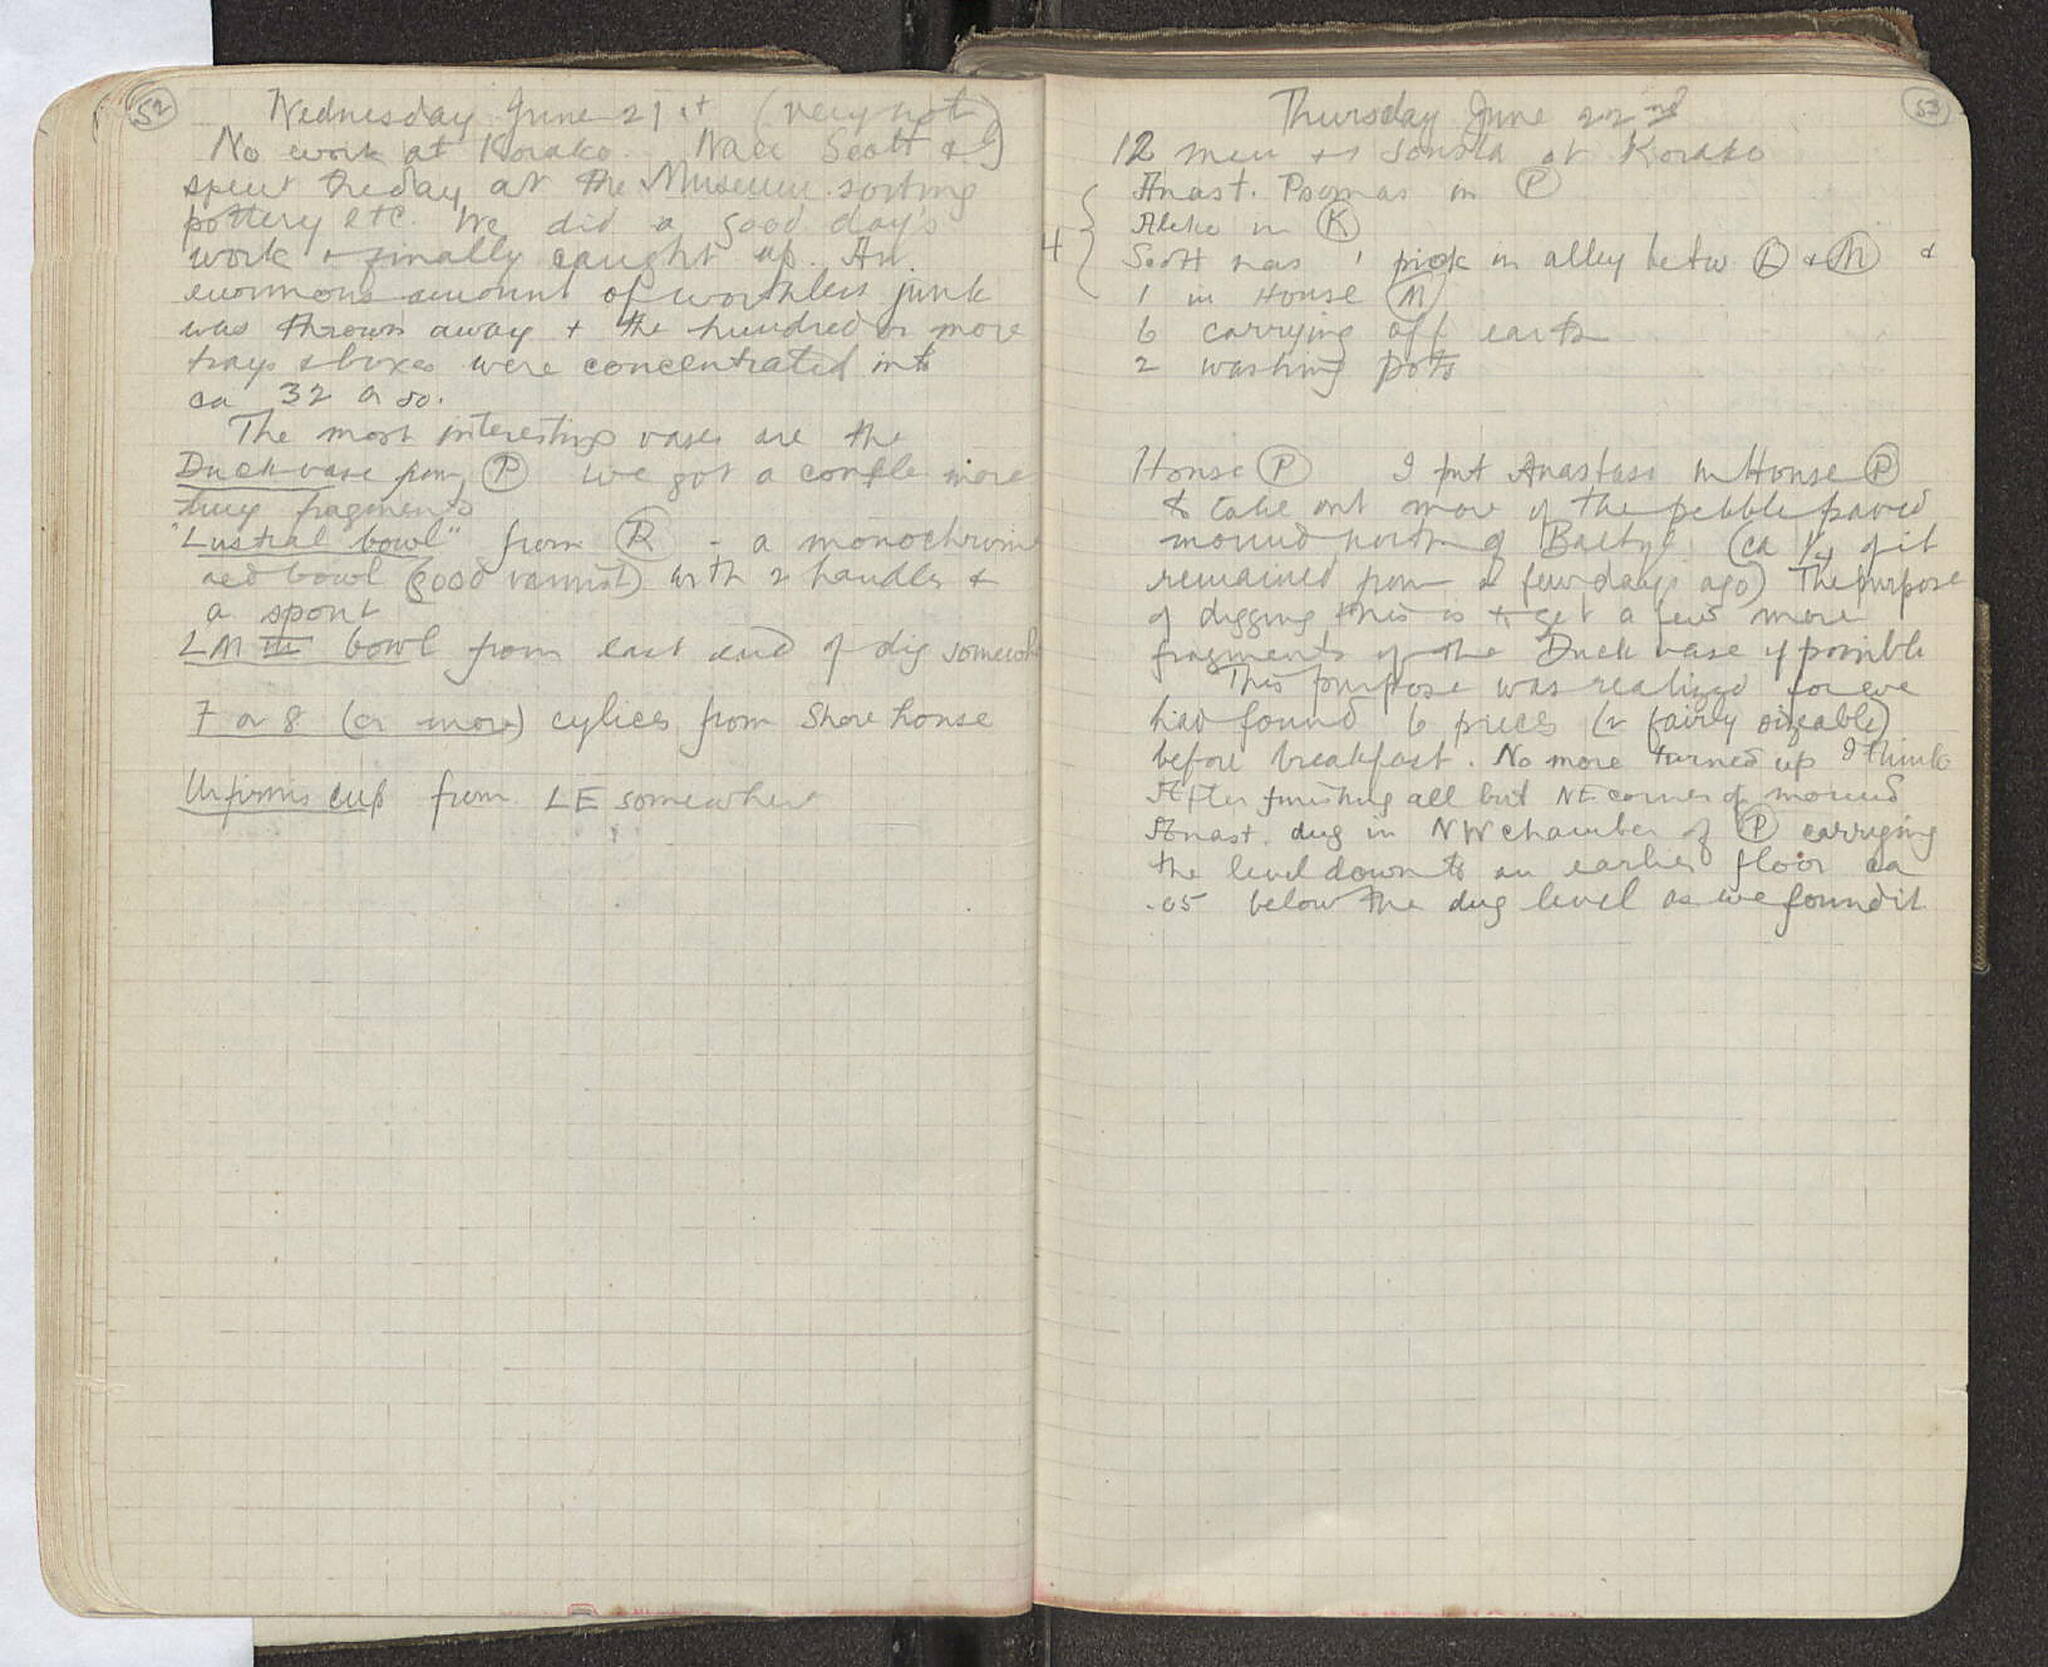 52
Wednesday June 21st (very hot)
No work at Korako. Nace Scott & I
spent the day at the Museum sorting
pottery etc. We did a good day's
work + finally caught up. An
enormous amount of worthless junk
was thrown away + the hundred or more
trays & boxes were concentrated into
ca 32 or so.
The most interesting vases are the
Duck vase from P we got a couple more
tiny fragments
"Lustral bowl" from R - a monochrome
red bowl (good varnish) with 2 handles &
a spout
LM III bowl from east end of dig somewh
7 or 8 (or more) cylices from Shore house
Urfirnis cup from LE somewhere
53
Thursday June 22nd
12 men + 1 at Korako
Anast. Psomas in P
Aleko in K
4 Scott has 1 pick in alley betw L & M &
1 in House M
6 carrying off earth
2 washing pots
House P I put Anastasi in House P
to take out more of the pebble paved
mound north of (ca 1/4 of it
remained from a few days ago) The purpose
of digging this is to get a few more
fragments of the Duck vase if possible
This purpose was realized for we
had found 6 pieces (2 fairly sizeable)
before breakfast. No more turned up I think
After finishing all but NE corner of mound
Anast. dug in NW chamber of P carrying
the level down to an earlier floor ca
.05 below the dug level as we found it